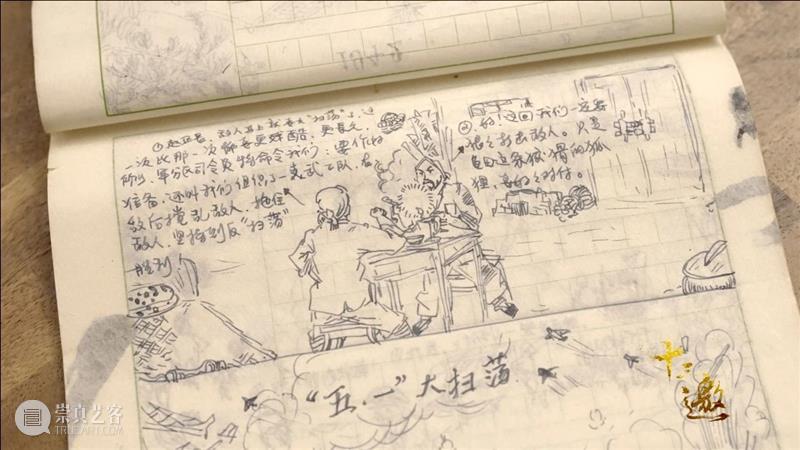 1942
①赵区长，敌人马上就要大“扫荡”了，这
一次比那一次都要更残酷，更長久，
所以，军分区司令员特命令我们：要作好
准备，还叫我们组织了一支武工队，在
敌后搅乱敌人，拖住
敌人，坚持到反“扫荡”
胜利
②好！这回我们一定要
狠狠打击敌人。只是
龟田这家狡猾的狐
狸，要好好对付。
“五.一”大扫荡
十三邀
崇真艺客
TRUEART.COM